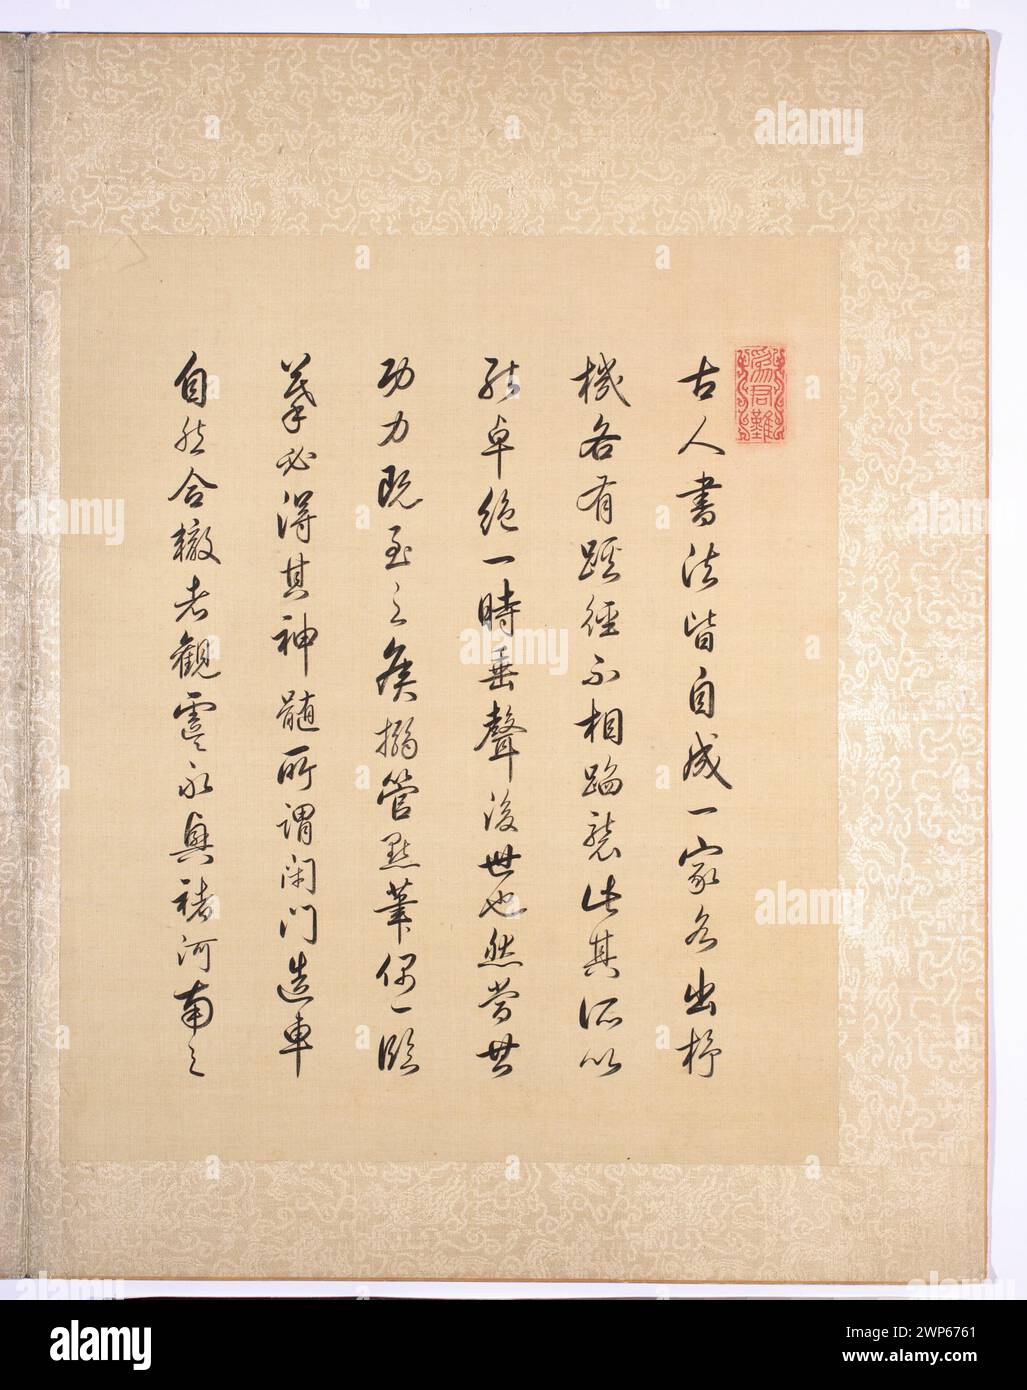 為君難
古人書法皆自成一家各出杼
機各有蹊徑不相蹈襲此其所以
能卓絕一時垂聲後世也然當其
功力既至之候搦管點筆偶一臨
摹必得其神髓所謂閉門造車
自然合轍者觀虞永興褚河南之
alamy
Image ID: 2WP6761
www.alamy.com